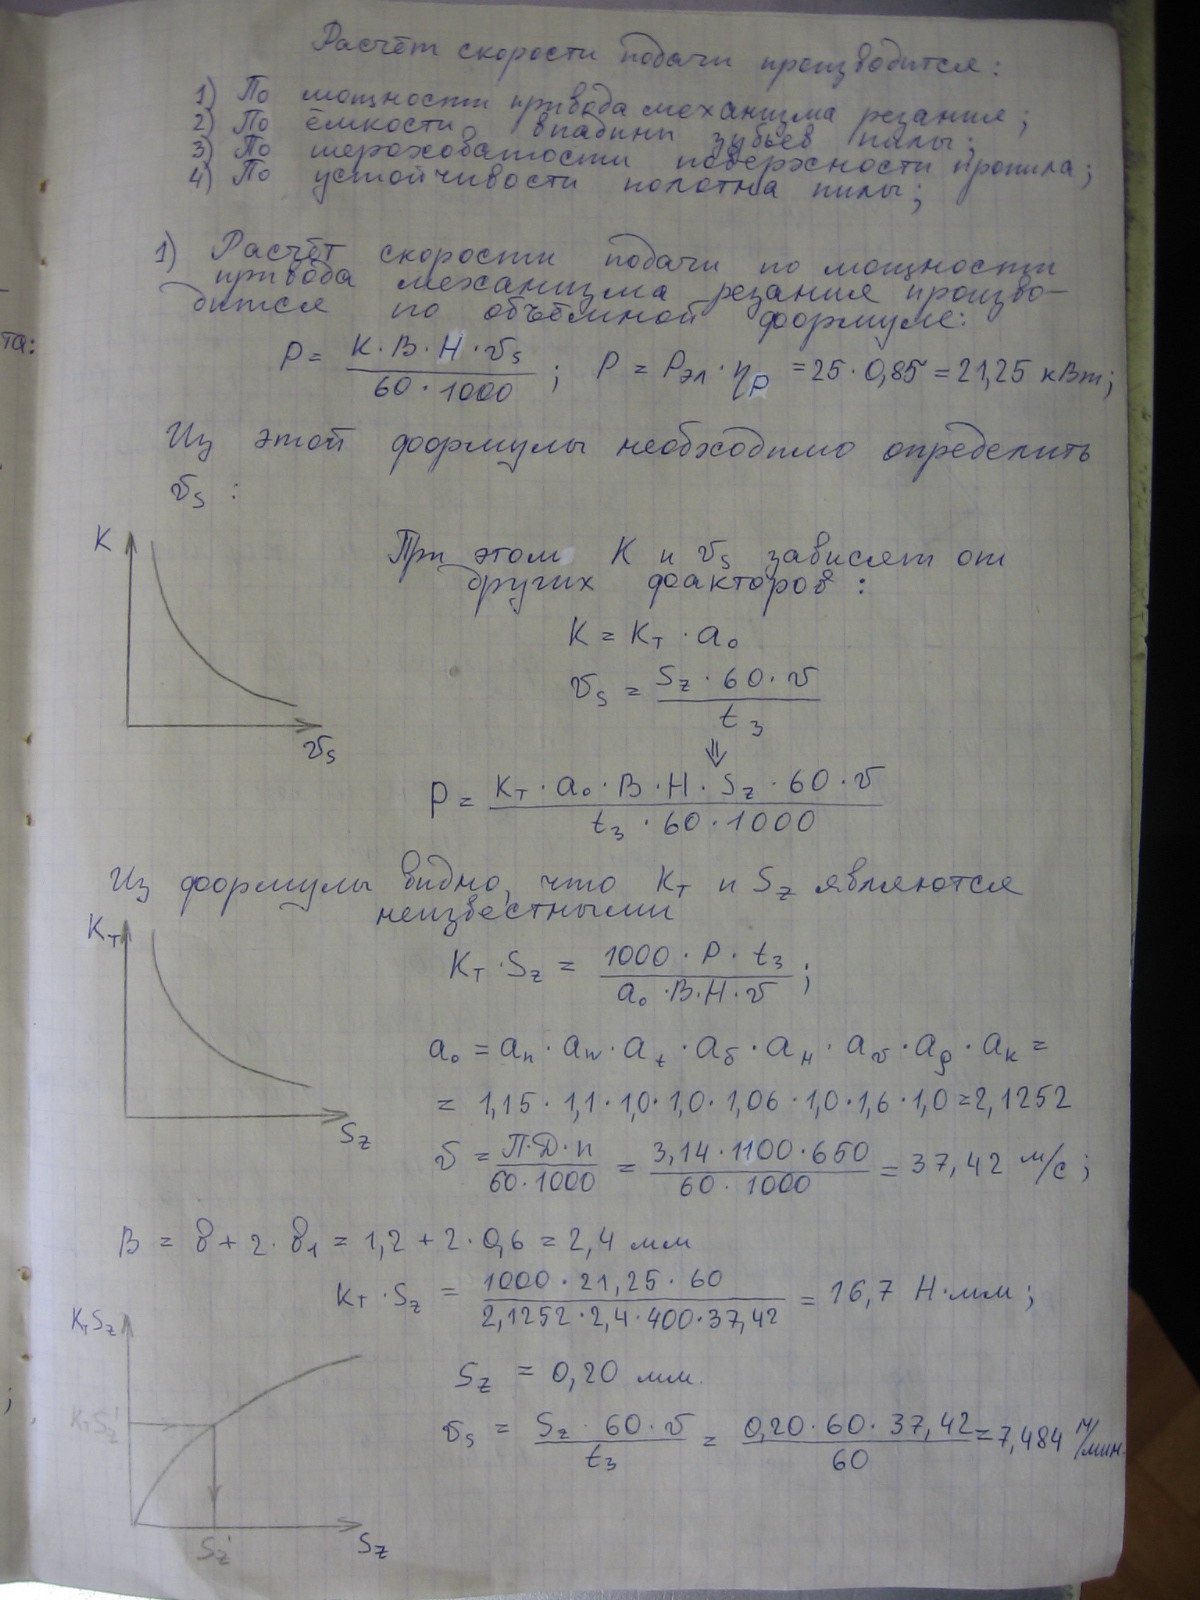 Расчёт скорости подачи производится:
1) По мощности привода механизма резания;
2) По ёмкости впадины зубьев пилы;
3) По шероховатости поверхности пропила;
4) По устойчивости полотна пилы;
1) Расчёт скорости подачи по мощности
привода механизма резания произво-
дится по объёмной формуле:
P = K·B·H·υs / 60·1000 ; P = Pэл·ηp = 25·0,85 = 21,25 кВт;
Из этой формулы необходимо определить
υs :
K
При этом K и υs зависят от
других факторов:
K = Kт · a₀
υs = Sz·60·υ / tз
υs
⇓
P = Kт·a₀·B·H·Sz·60·υ / tз·60·1000
Из формулы видно, что Kт и Sz являются
неизвестными
Kт
Kт·Sz = 1000·P·tз / a₀·B·H·υ ;
a₀ = aп·aw·at·aδ·aн·aυ·aφ·aк =
= 1,15·1,1·1,0·1,0·1,06·1,0·1,6·1,0 = 2,1252
Sz
υ = П·Д·n / 60·1000 = 3,14·1100·650 / 60·1000 = 37,42 м/с;
B = в + 2·в1 = 1,2 + 2·0,6 = 2,4 мм
Kт·Sz = 1000·21,25·60 / 2,1252·2,4·400·37,42 = 16,7 Н·мм;
KтSz
Sz = 0,20 мм
KтSz'
υs = Sz·60·υ / tз = 0,20·60·37,42 / 60 = 7,484 м/мин.
Sz'
Sz
та:
;